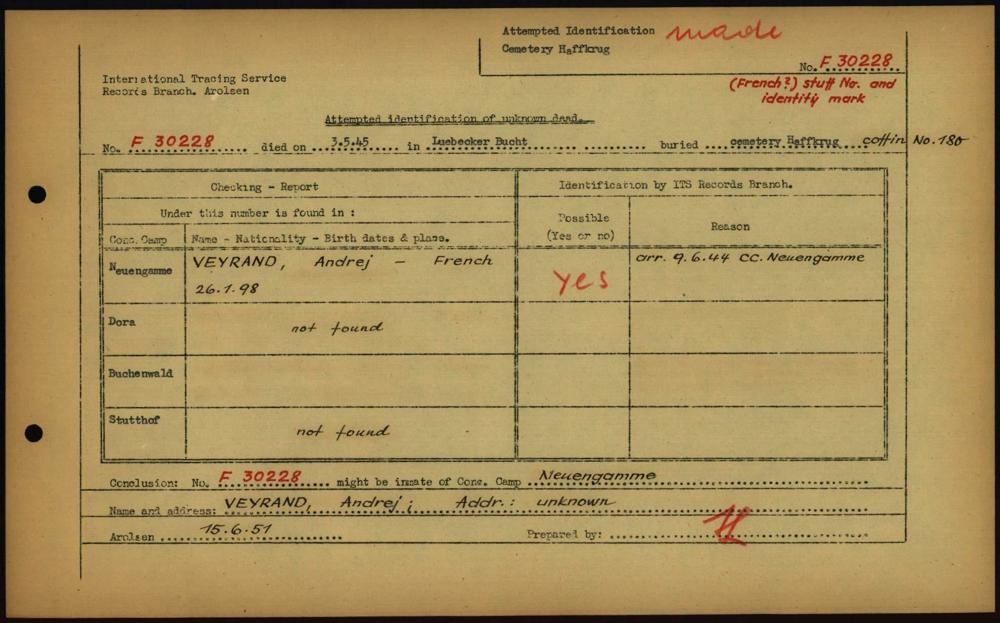 Attempted Identification made
Cemetery Haffkrug
No. F 30228
(French?) stuff No. and
identity mark
International Tracing Service
Records Branch. Arolsen
Attempted identification of unknown dead.
No. F 30228 died on 3.5.45 in Luebecker Bucht buried cemetery Haffkrug coffin No. 180
Checking - Report
Identification by ITS Records Branch.
Under this number is found in :
Possible
(Yes or no)
Reason
Conc. Camp
Name - Nationality - Birth dates & place.
Neuengamme
VEYRAND, Andrej – French
26.1.98
Yes
arr. 9.6.44 CC. Neuengamme
Dora
not found
Buchenwald
Stutthof
not found
Conclusion: No. F 30228 might be inmate of Conc. Camp Neuengamme
Name and address: VEYRAND, Andrej ; Addr. : unknown
Arolsen 15.6.51 Prepared by: